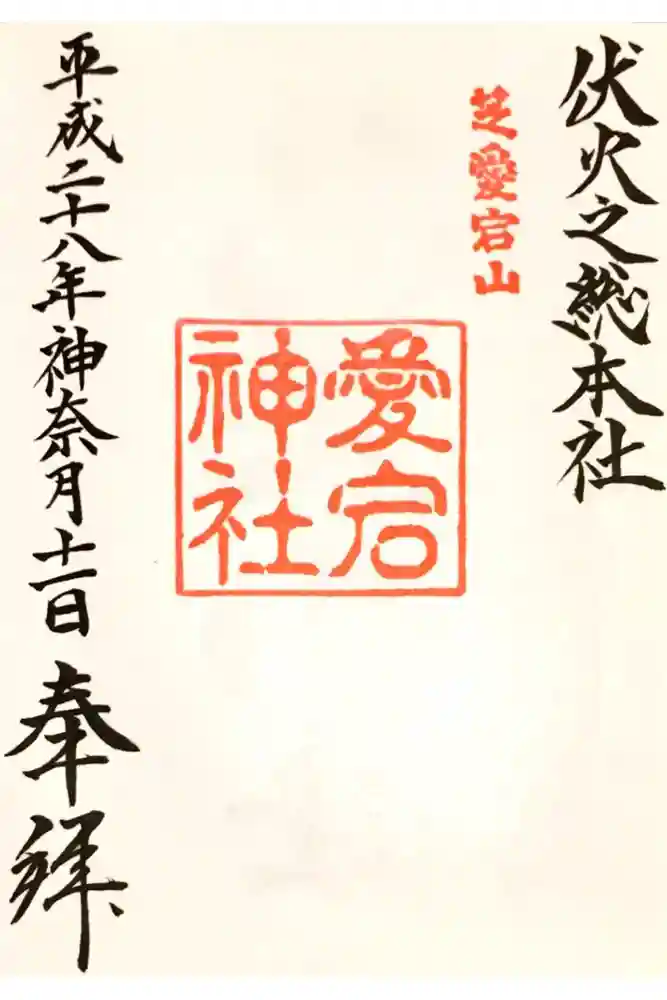 伏火之総本社
芝愛宕山
愛宕
神社
平成二十八年神奈月十一日 奉拝